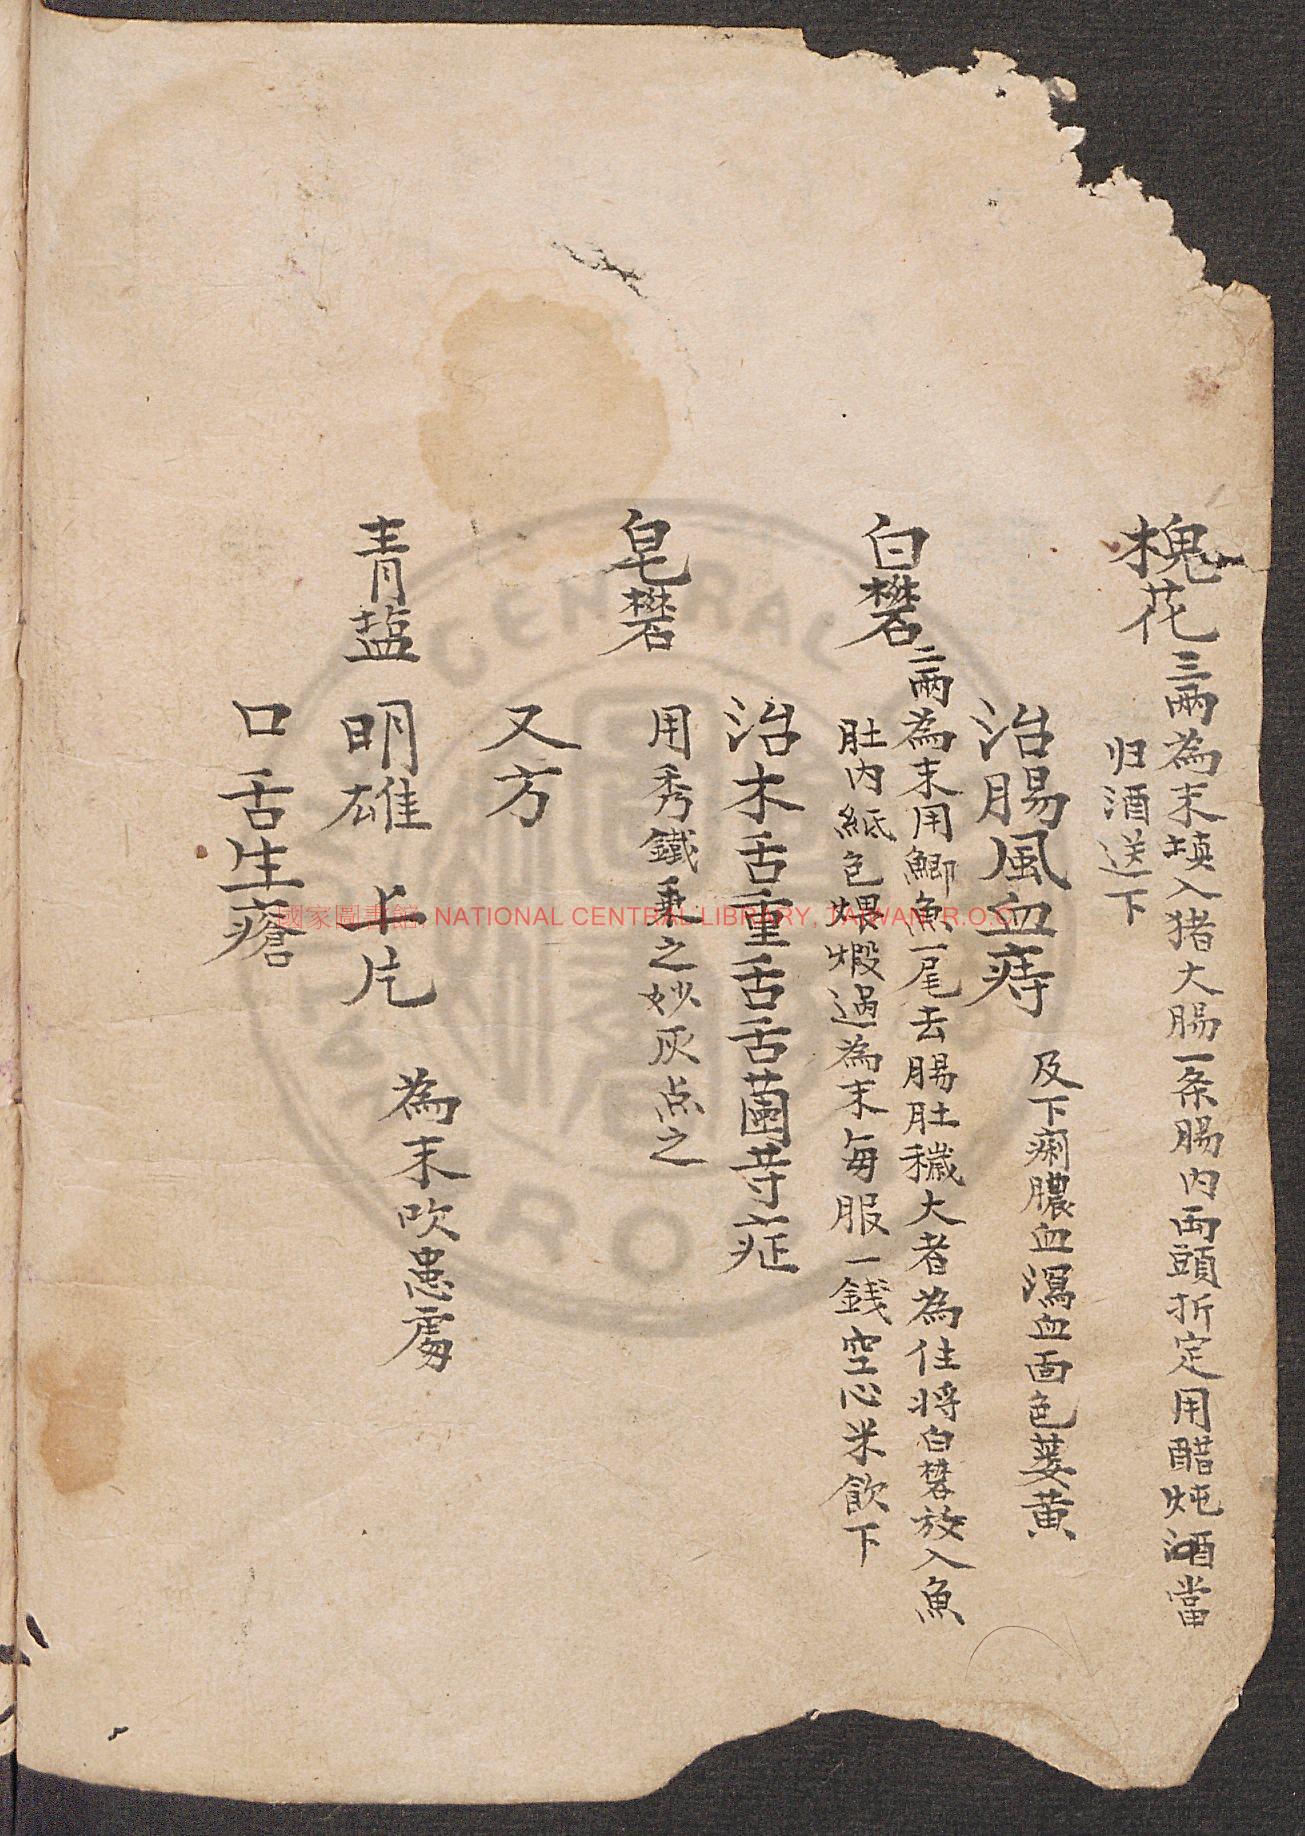 槐花三兩為末填入猪大腸一条腸内両頭折定用醋炖酒當
归酒送下
治腸風血痔 及下痢膿血瀉血面色萎黄
白礬二兩為末用鯽魚一尾去腸肚穢大者為佳将白礬放入魚
肚内紙包煨煅過為末每服一錢空心米飲下
治木舌重舌舌菌等症
皂礬 用秀鐵秉之妙灰点之
又方
青盐 明雄 上片 為末吹患處
口舌生瘡
國家圖書館, NATIONAL CENTRAL LIBRARY, TAIWAN, R.O.C